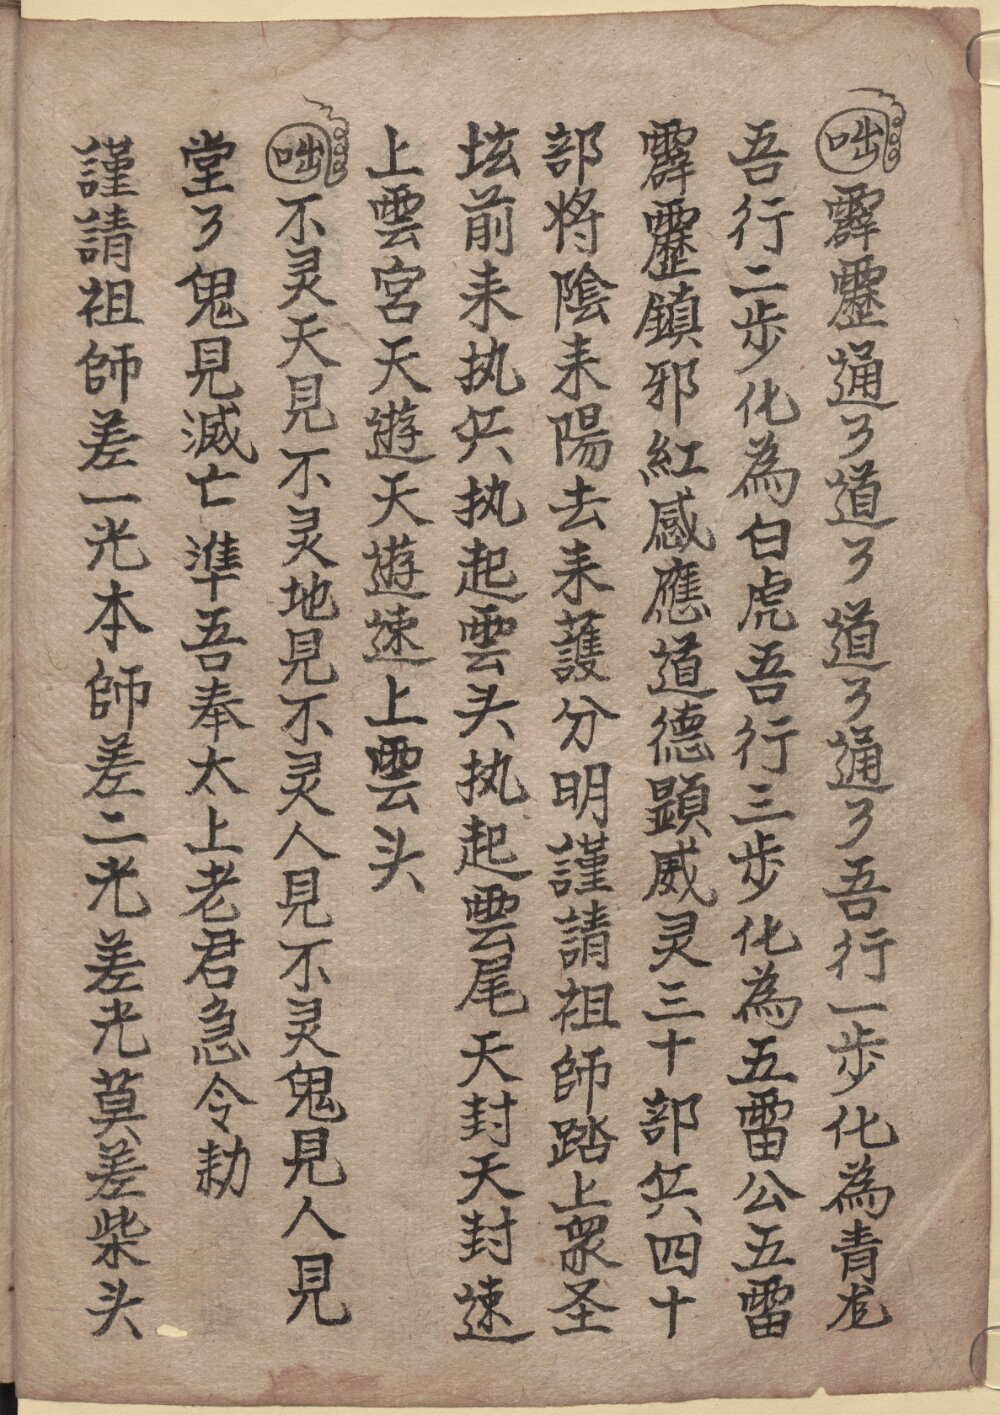 咄霹靂通々道々道々通々吾行一步化為青龙
吾行二步化為白虎吾行三步化為五雷公五雷
霹靂鎮邪紅感應道德顕威灵三十部兵四十
部将陰耒陽去耒護分明謹請祖師踏上眾圣
坛前耒执兵执起雲头执起雲尾天封天封速
上雲宮天遊天遊速上雲头
咄不灵天見不灵地見不灵人見不灵鬼見人見
堂々鬼見滅亡準吾奉太上老君急令勅
謹請祖師差一光本師差二光差光莫差柴头